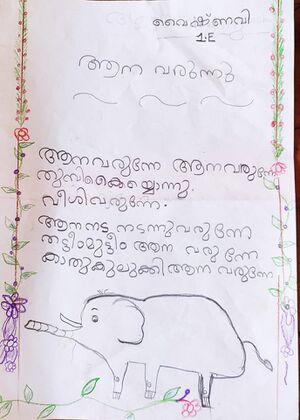 വൈഷ്ണവി
1.E
ആന വരുന്നു
ആനവരുന്നേ ആനവരുന്നേ
തുമ്പികൈയ്യൊന്നു.
വീശിവരുന്നേ.
ആനനട നടന്നുവരുന്നേ
തട്ടീംമുട്ടീം ആന വരുന്നേ
കാതുകുലുക്കി ആന വരുന്നേ